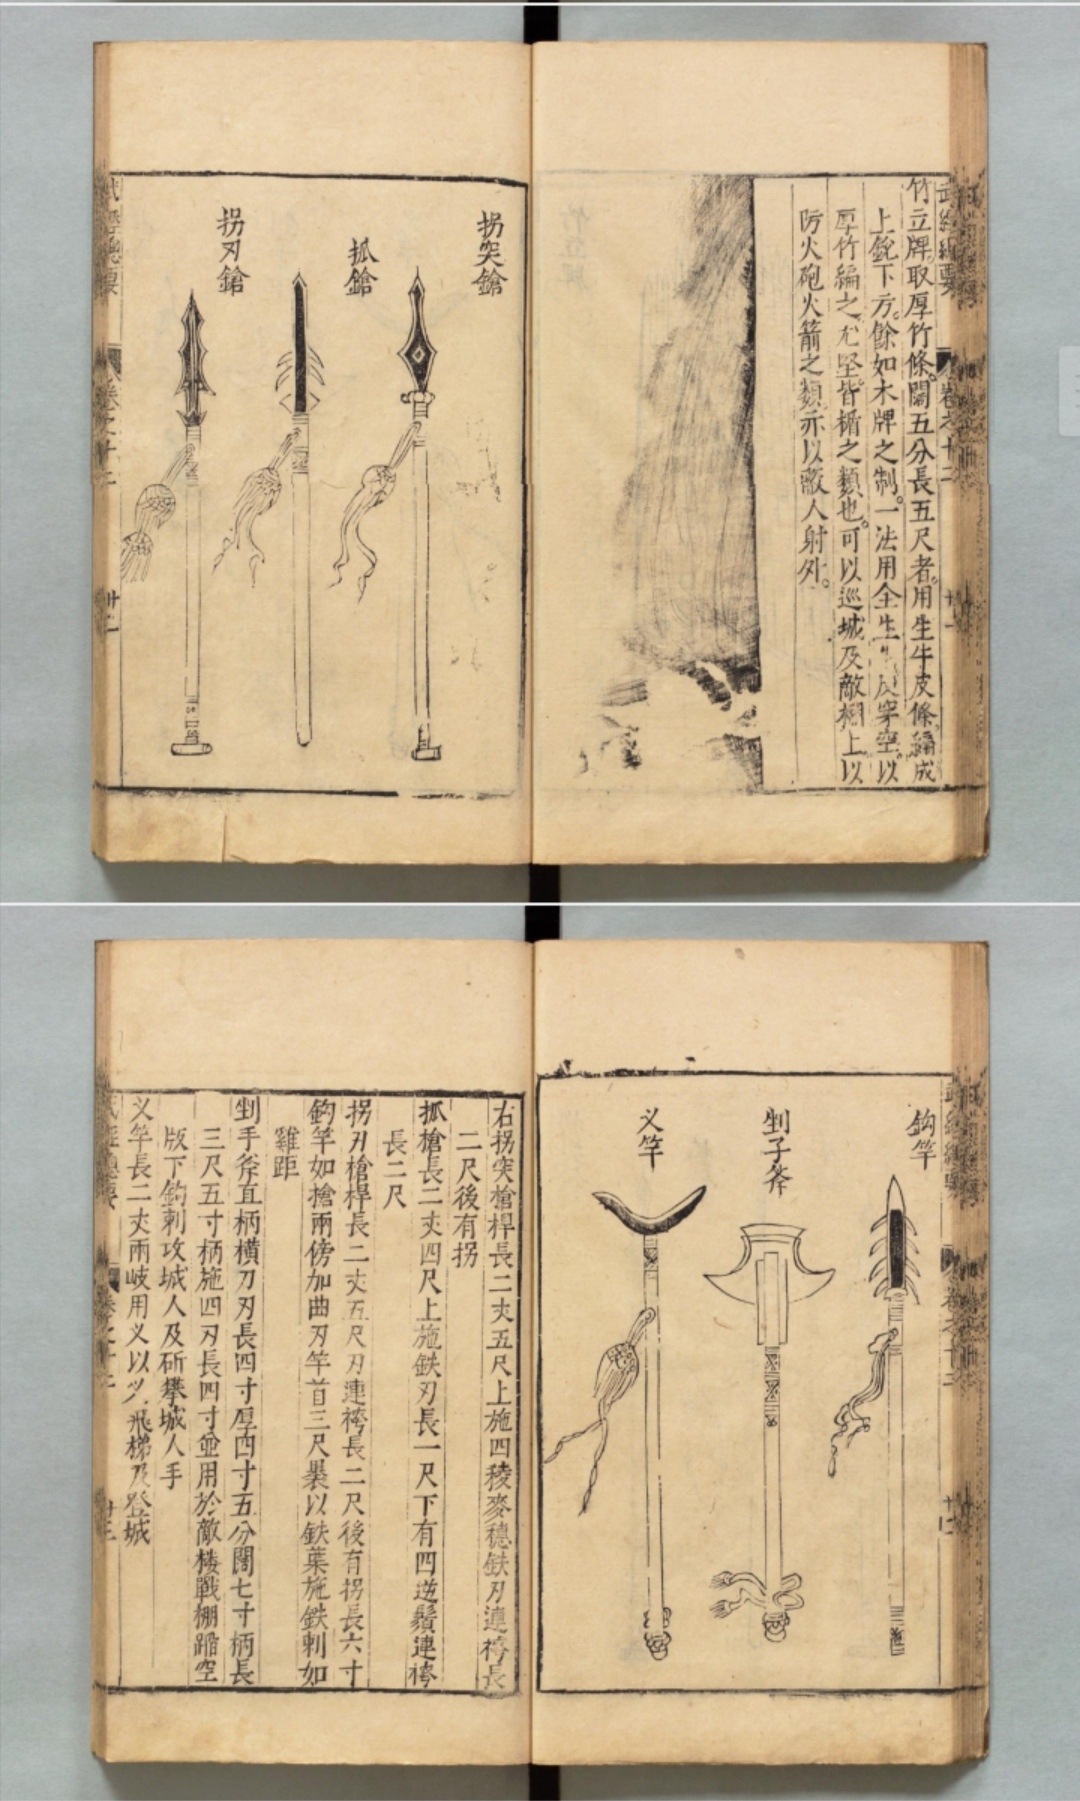 武經總要
卷之十二
竹立牌取厚竹條闊五分長五尺者。用生牛皮條編成
上銳下方。餘如木牌之制。一法用全生牛皮穿空。以
厚竹編之尤堅。皆楯之類也。可以巡城及敵棚上以
防火砲火箭之類亦以蔽人射外。
拐突鎗
抓鎗
拐刃鎗
武經總要
卷之十二
廿二
鈎竿
剉子斧
义竿
右拐突槍桿長二丈五尺上施四稜麥穗鉄刃連袴長
二尺後有拐
抓槍長二丈四尺上施鉄刃長一尺下有四逆鬚連袴
長二尺
拐刃槍桿長二丈五尺刃連袴長二尺後有拐長六寸
鈎竿如搶兩傍加曲刃竿首三尺褁以鉄葉施鉄刺如
雞距
剉手斧直柄橫刀刃長四寸厚四寸五分闊七寸柄長
三尺五寸柄施四刃長四寸並用於敵楼戰棚蹋空
版下鈎刺攻城人及斫攀城人手
义竿長二丈兩岐用义以义飛梯及登城
武經總要
卷之十二
廿三